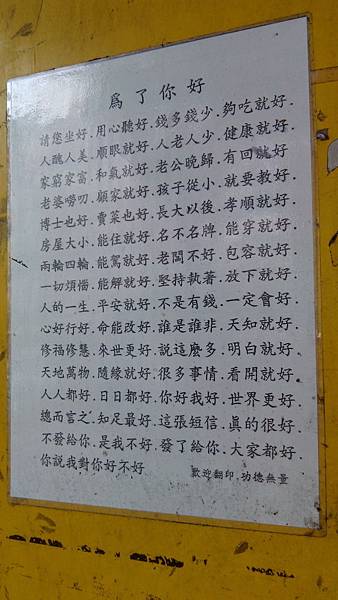 為了你好
請您坐好.用心聽好.錢多錢少.夠吃就好.
人醜人美.順眼就好.人老人少.健康就好.
家窮家富.和氣就好.老公晚歸.有回就好.
老婆嘮叨.顧家就好.孩子從小.就要教好.
博士也好.賣菜也好.長大以後.孝順就好.
房屋大小.能住就好.名不名牌.能穿就好.
兩輪四輪.能駕就好.老闆不好.包容就好.
一切煩惱.能解就好.堅持執著.放下就好.
人的一生.平安就好.不是有錢.一定會好.
心好行好.命能改好.誰是誰非.天知就好.
修福修慧.來世更好.說這麼多.明白就好.
天地萬物.隨緣就好.很多事情.看開就好.
人人都好.日日都好.你好我好.世界更好.
總而言之.知足最好.這張短信.真的很好.
不發給你.是我不好.發了給你.大家都好.
你說我對你好不好
歡迎翻印.功德無量